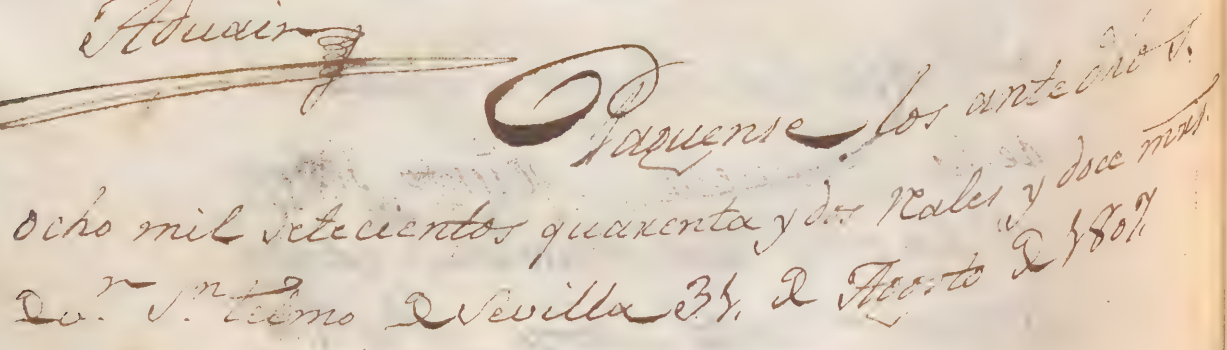 Aduair
Paguense los antedhõs.
ocho mil setecientos quarenta y dos rales y doce mrs.
de v.r S.n telmo de Sevilla 31. de Agosto de 1807